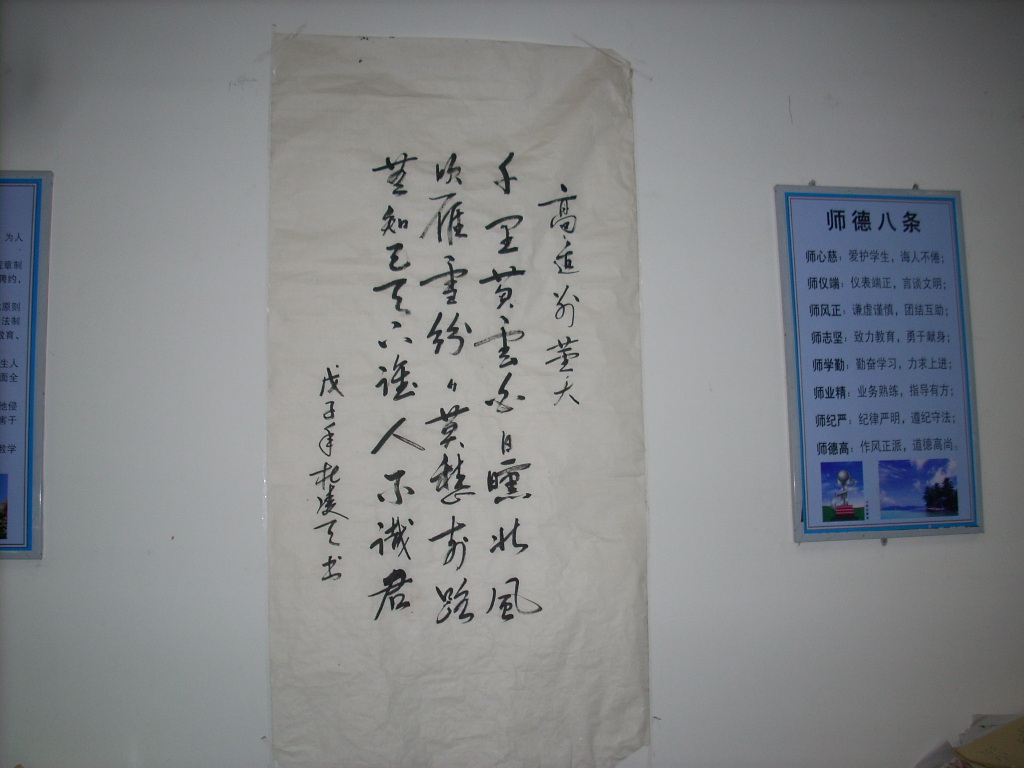 为人
章制
原则
法制
教育、
生人
面全
教学
高适别董大
千里黄雲白日曛北風
吹雁雪紛々莫愁前路
無知己天下誰人不識君
戊子年 书
师德八条
师心慈：爱护学生，诲人不倦；
师仪端：仪表端正，言谈文明；
师风正：谦虚谨慎，团结互助；
师志坚：致力教育，勇于献身；
师学勤：勤奋学习，力求上进；
师业精：业务熟练，指导有方；
师纪严：纪律严明，遵纪守法；
师德高：作风正派，道德高尚。